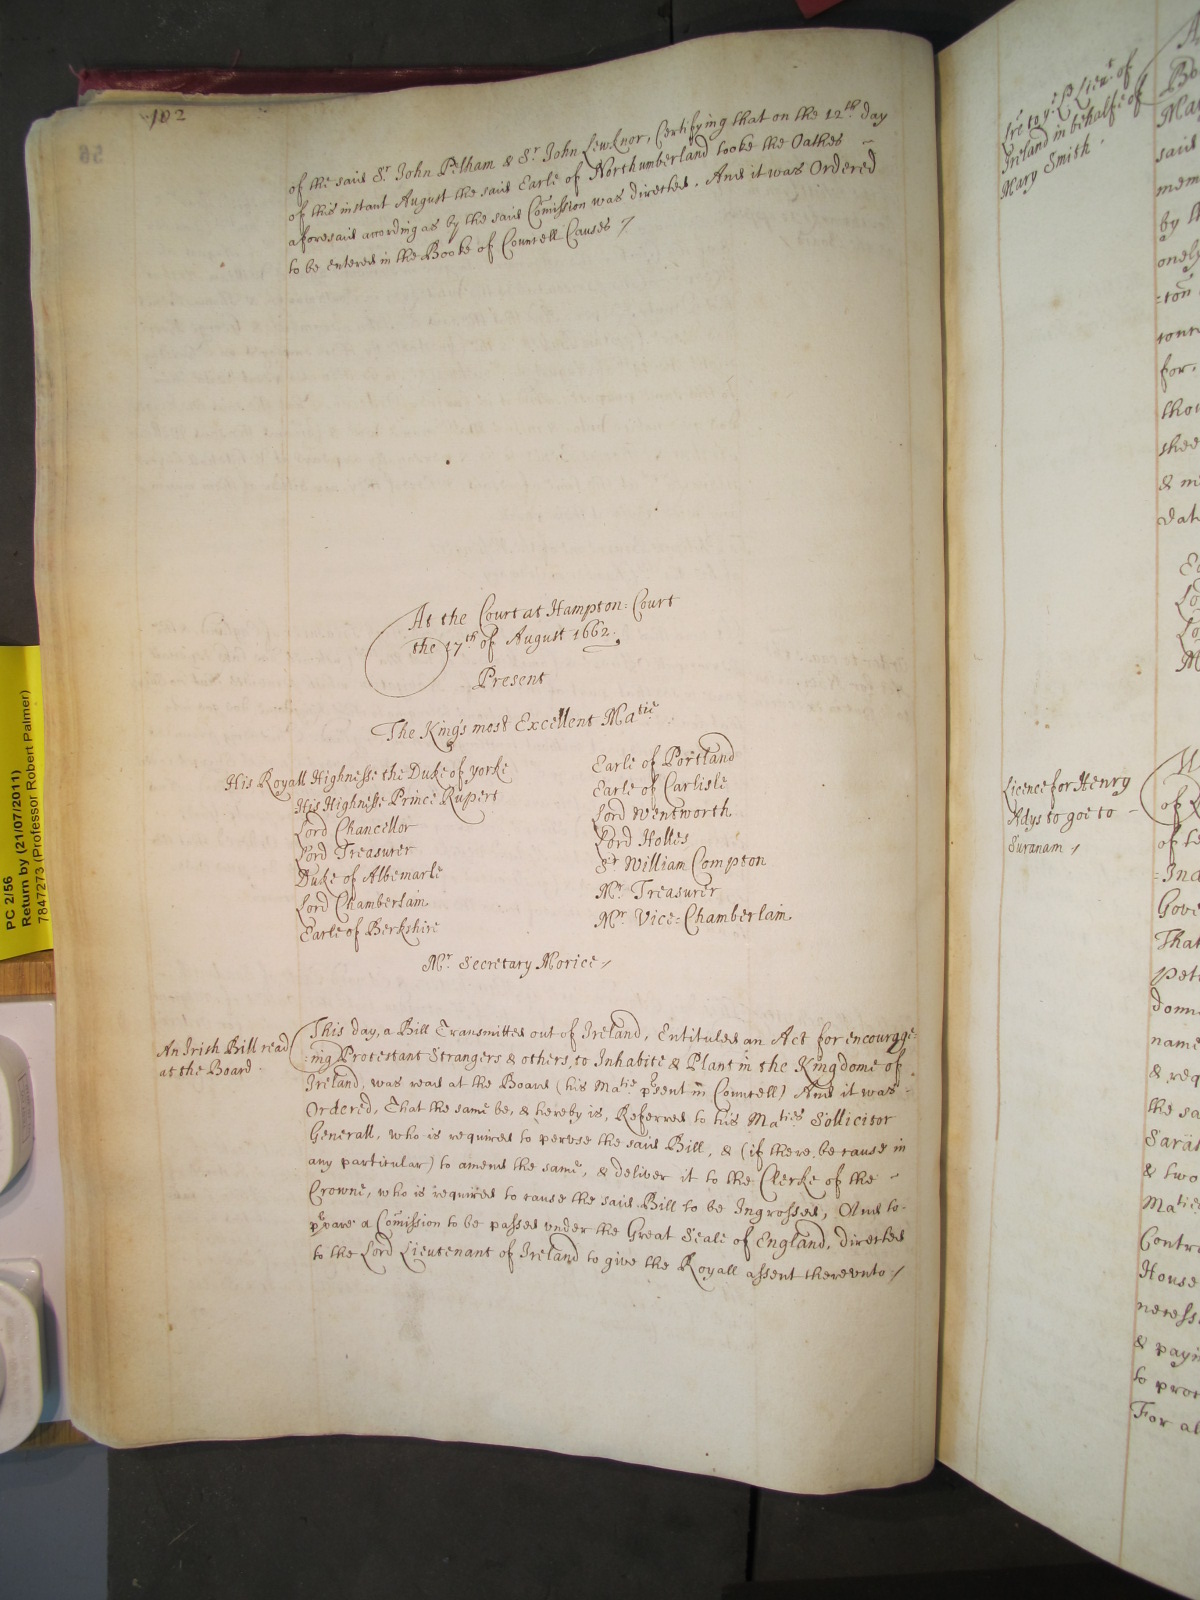 102
of the said Sr. John Pelham & Sr. John Lewknor, Certifying that on the 12th. day
of this instant August the said Earle of Northumberland tooke the Oathes
aforesaid according as by the said Comission was directed. And it was Ordered
to be entered in the Booke of Councell Causes /
At the Court at Hampton: Court
the 17th of August 1662.
Present
The Kings most Excellent Matie
His Royall Highnesse the Duke of yorke
His Highnesse Prince Rupert
Lord Chancellor
Lord Treasurer
Duke of Albemarle
Lord Chamberlain
Earle of Berkshire
Earle of Portland
Earle of Carlisle
Lord Wentworth
Lord Holles
Sr William Compton
Mr. Treasurer
Mr. Vice=Chamberlain
Mr. Secretary Morice /
An Irish Bill read
at the Board.
This day, a Bill Transmitted out of Ireland, Entituled an Act for encourage=
=ing Protestant Strangers & others, to Inhabite & Plant in the Kingdome of
Ireland, was read at the Board (his Matie. prsent in Councell) And it was
Ordered, That the same be, & hereby is, Referred to his Maties Sollicitor
Generall, who is required to peruse the said Bill, & (if there be cause in
any particular) to amend the same, & deliver it to the Clerke of the
Crowne, who is required to cause the said Bill to be Ingrossed, And to
prpare a Comission to be passed under the Great Seale of England, directed
to the Lord Lieutenant of Ireland to give the Royall assent thereunto /
Lre to ye. Ld Lieut. of
Ireland in behalfe of
Mary Smith.
Licence for Henry
Adys to goe to
Suranam /
said
by th
onely
for,
& m
of
Gove
That
name
& req
the sa
& two
Matie
Contr
House
& payin
For al
PC 2/56
Return by (21/07/2011)
7847273 (Professor Robert Palmer)